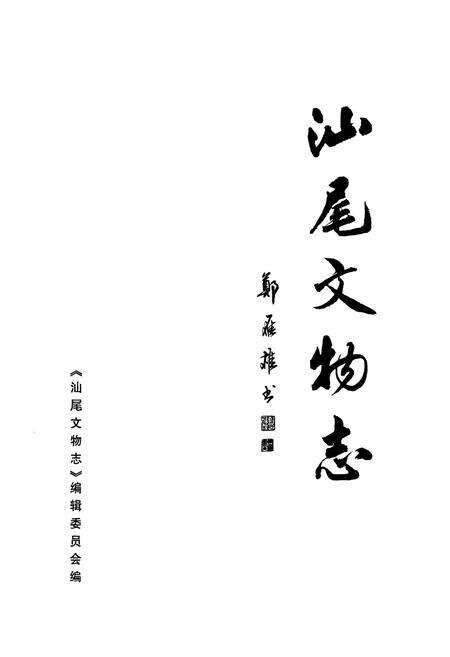 汕尾文物志
鄭雁雄书
《汕尾文物志》编辑委员会编